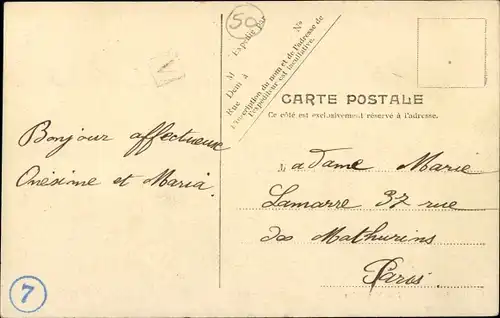 50
M
Expédié par
Demt à
Rue
No
L'inscription du nom et de l'adresse de
l'Expéditeur est facultative.
CARTE POSTALE
Ce côté est exclusivement réservé à l'adresse.
Bonjour affectueux
Onésime et Maria.
Madame Marie
Lamarre 37 rue
des Mathurins
Paris
7